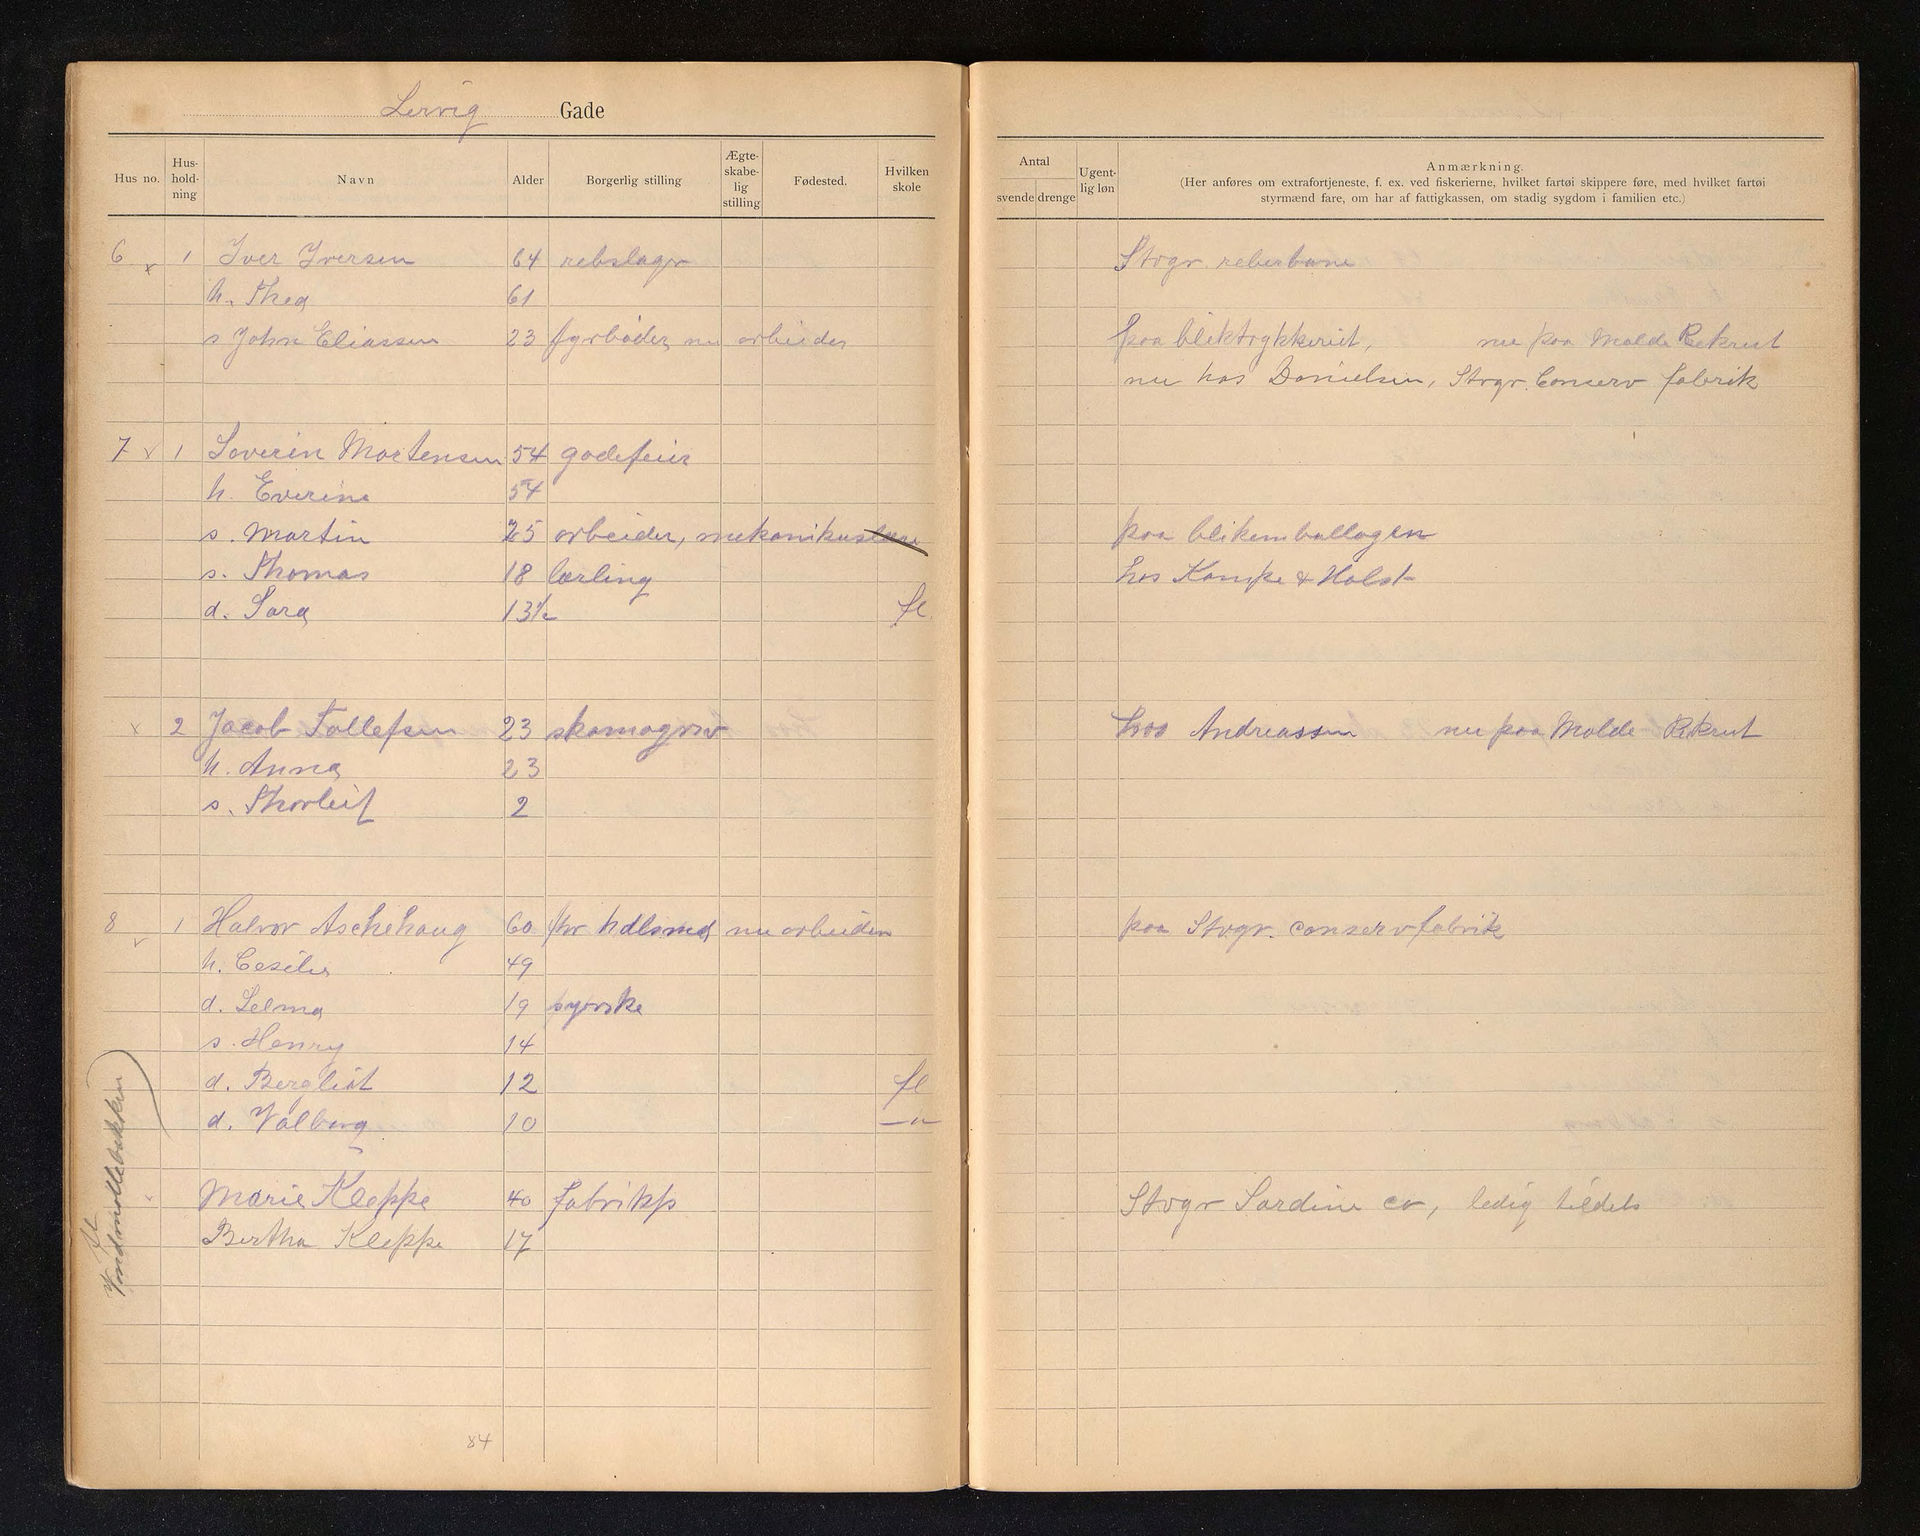 Lervig Gade
Hus no. Hus-hold-ning Navn Alder Borgerlig stilling Ægte-skabe-lig stilling Fødested. Hvilken skole
Antal svende drenge Ugent-lig løn Anmærkning.
(Her anføres om extrafortjeneste, f. ex. ved fiskerierne, hvilket fartøi skippere føre, med hvilket fartøi
styrmænd fare, om har af fattigkassen, om stadig sygdom i familien etc.)
6 x 1 Iver Iversen 64 rebslager Stvgr. reberbane
h. Thea 61
s John Eliassen 23 fyrbøder, nu arbeider paa bliktrykkeriet, nu paa Molde Rekrut
nu hos Danielsen, Stvgr. Conserv fabrik
7 x 1 Severin Mortensen 54 gadefeier
h. Everine 54
s. Martin 25 arbeider, mekanikus paa blikemballagen
s. Thomas 18 lærling hos Kampe & Holst
d. Sara 13½ fl.
x 2 Jacob Tollefsen 23 skomagersv hos Andreassen nu paa Molde Rekrut
h. Anna 23
s. Thorleif 2
8 1 Halvor Aschehoug 60 fhv hdlsmd nu arbeider paa Stvgr. conservfabrik
h. Cesilie 49
d. Selma 19 syerske
s. Henry 14
d. Bergliot 12 fl
d. Valborg 10 —"—
Marie Kleppe 40 fabrikp Stvgr Sardine co, ledig tildels
Bertha Kleppe 17
84